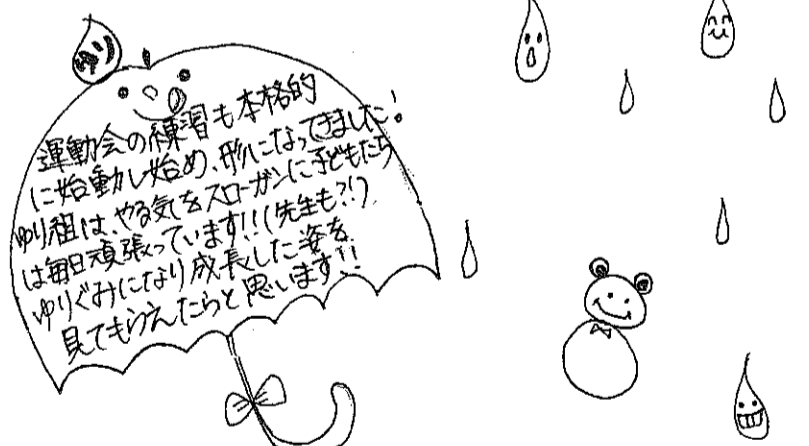 運動会の練習も本格的
に始動し始め、形になってきました!
ゆり組は、やる気をスローガンに子どもたち
は毎日頑張っています!!(先生も?!)
ゆりぐみになり成長した姿を
見てもらえたらと思います!!